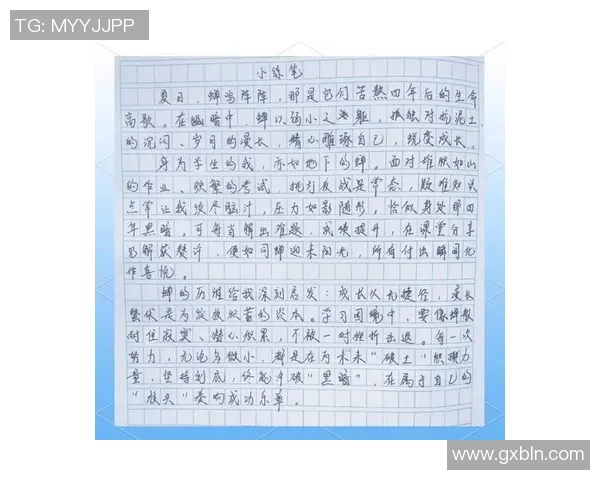 TG: MYYJJPP
小练笔
夏日，蝉鸣阵阵，那是它们苦熬四年后的生命
高歌。在幽暗中，蝉以弱小之躯，孤独对抗泥土
的沉闷、岁月的漫长，精心雕琢自己，蜕变成长。
身为学生的我，亦如地下的蝉。面对堆积如山
的作业、频繁的考试，挑灯夜战是常态，疑难知识
点常让我绞尽脑汁，压力如影随形，恰似身处那四
年黑暗。可每当解出难题，成绩提升，在课堂分享
见解获赞许，便如同蝉迎来阳光，所有付出瞬间化
作喜悦。
蝉的历程给我深刻启发：成长从无捷径，漫长
蛰伏是为发续的资本。学习困境中，要像蝉般
耐住寂寞、潜心积累，不被一时挫折击退。每一次
努力，无论多微小，都是在为未来“破土”积攒力
量，坚持到底，终能冲破“黑暗”，在属于自己的
“枝头”奏响成功乐章。
www.gxbln.com